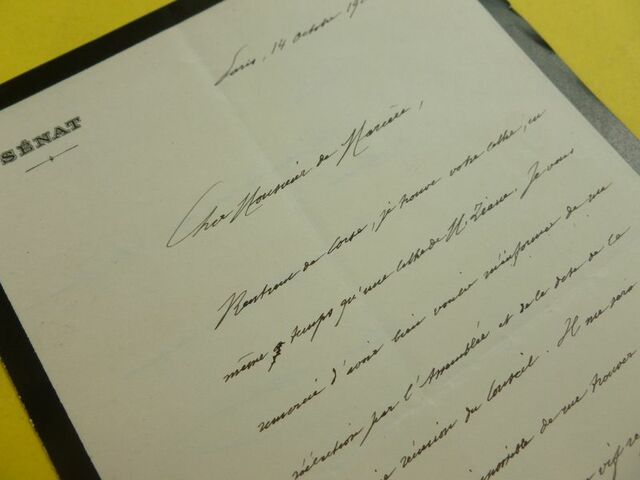 Paris, 14 Octobre 19
SÉNAT
Cher Monsieur de
Rentrant de Corse, je trouve votre lettre, en
même temps qu'une lettre de M. Je vous
remercie d'avoir bien voulu m'informer de ma
réélection par l'Assemblée et de la date de la
réunion du Conseil. Il me sera
impossible de me trouver